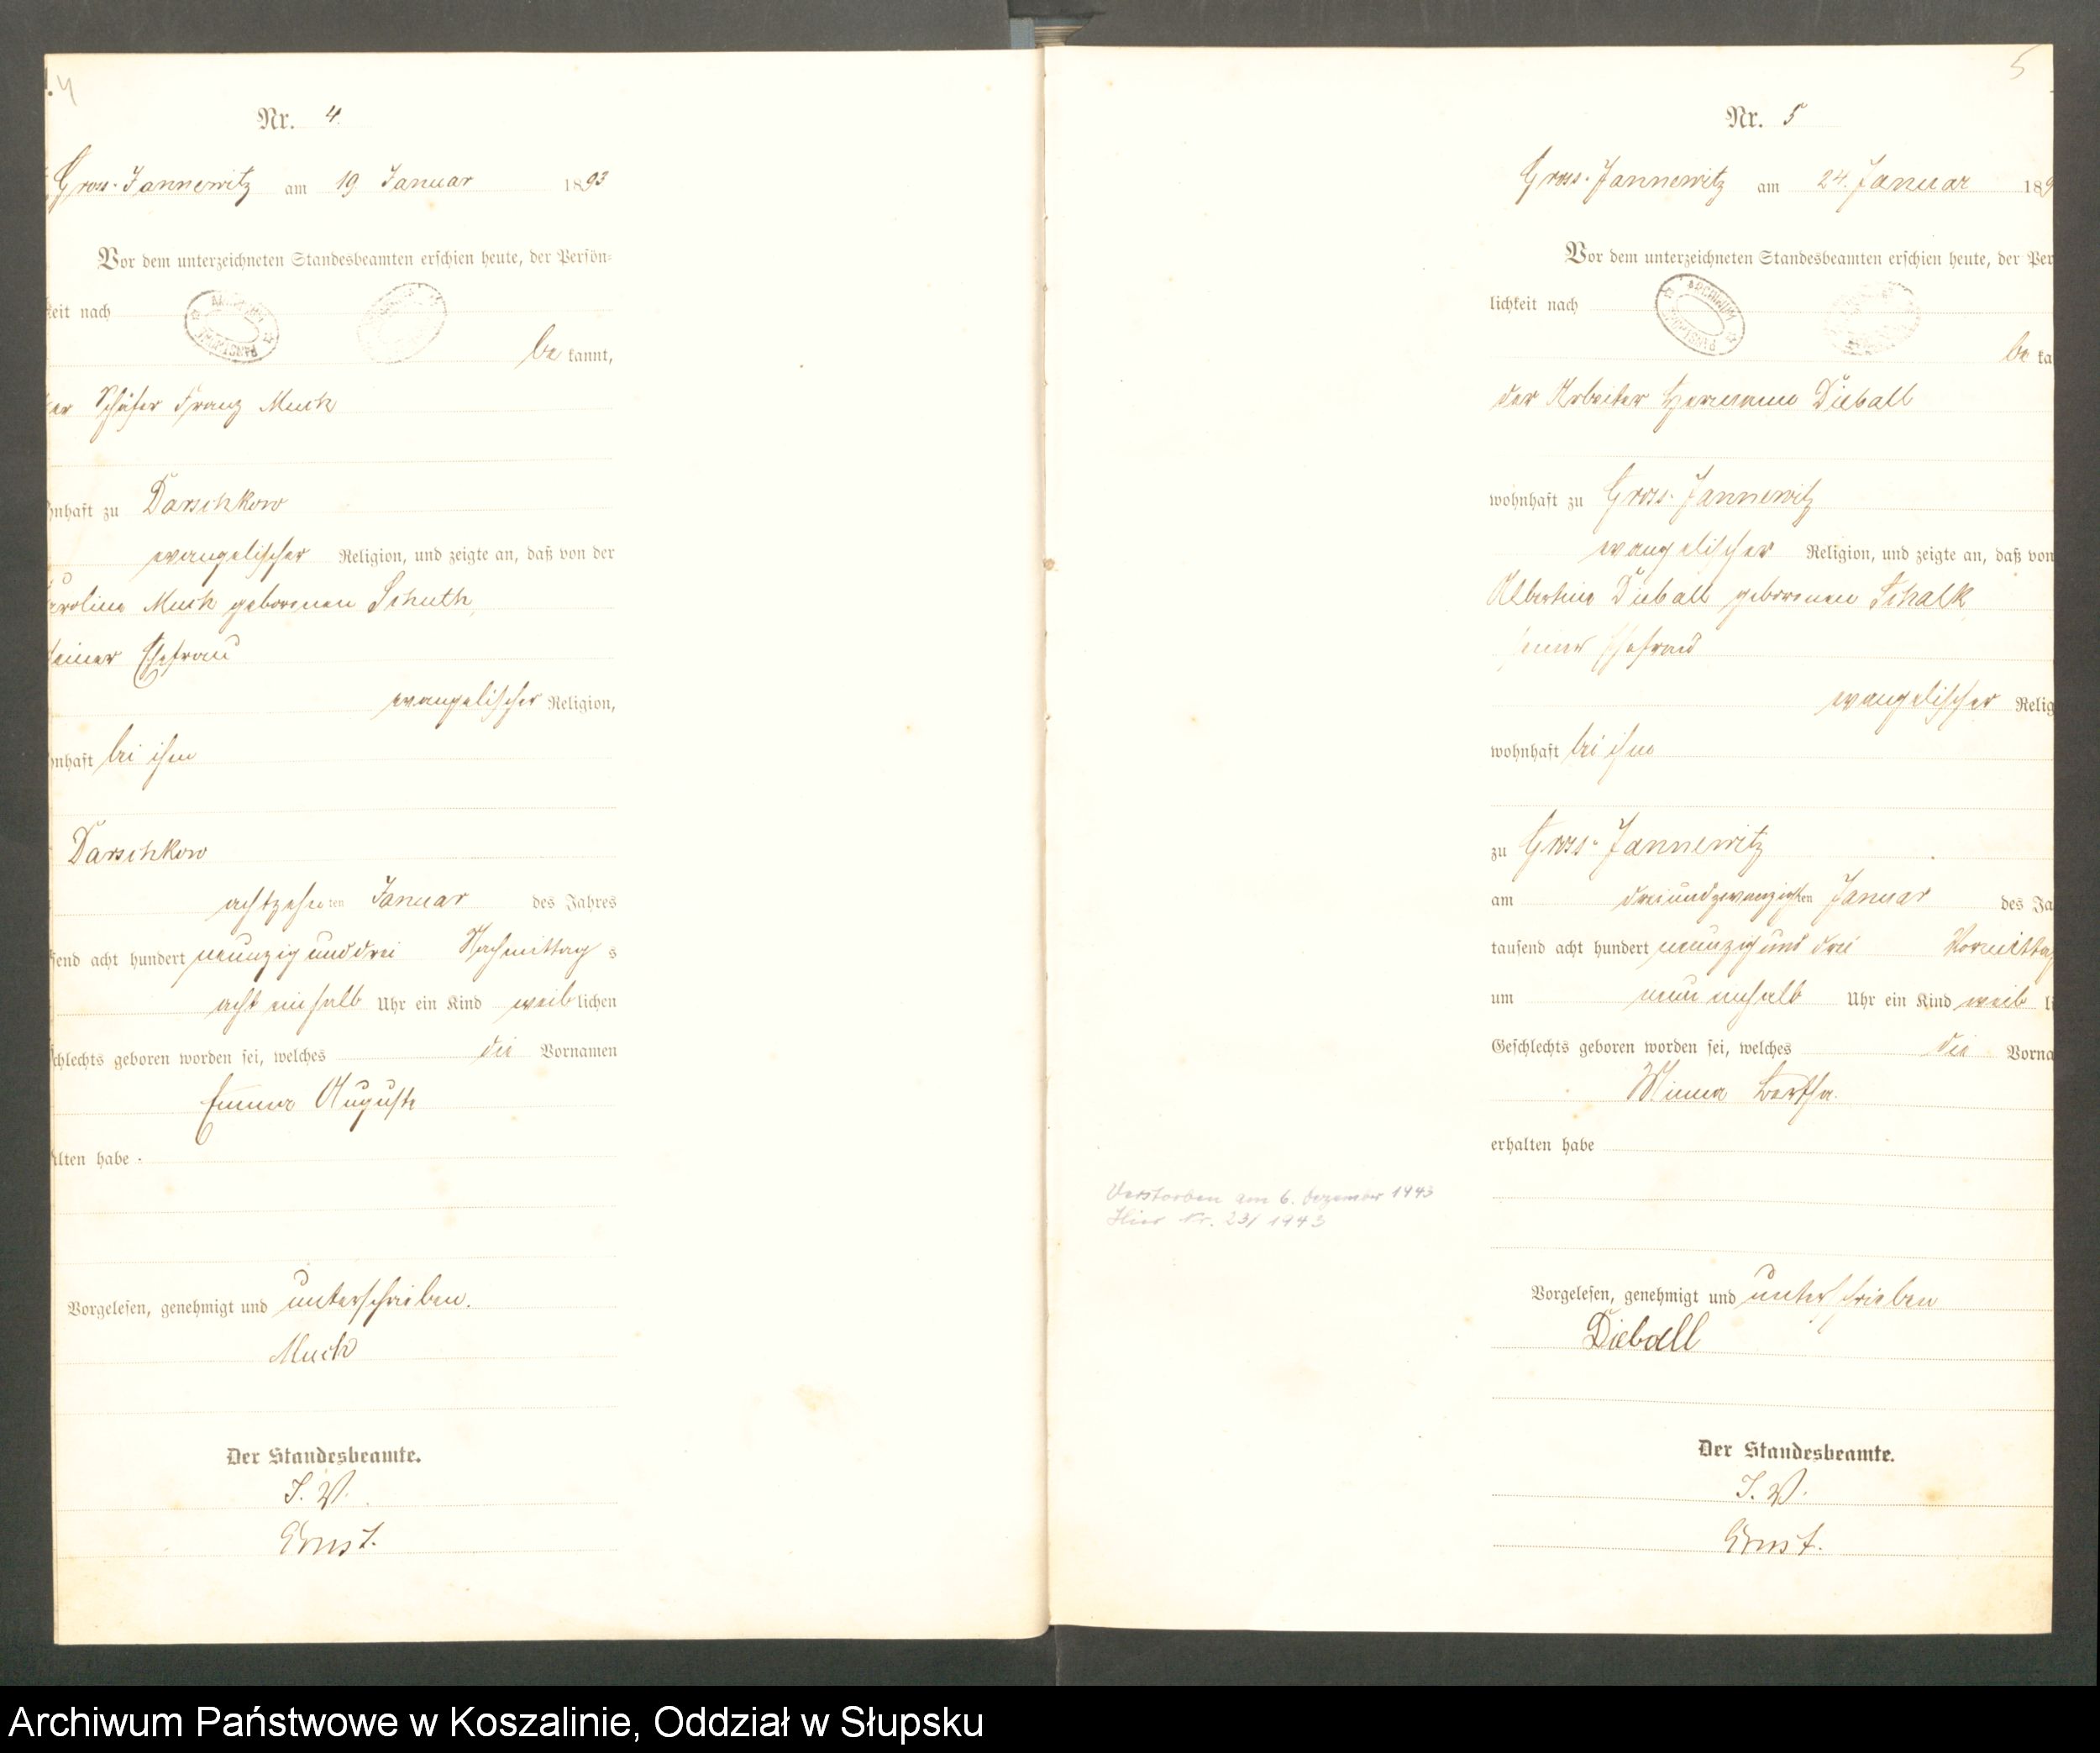 4
Nr. 4.
Gross-Jannewitz am 19 Januar 1893
Vor dem unterzeichneten Standesbeamten erschien heute, der Persön-
keit nach
be kannt,
der Schäfer Franz Muck
hnhaft zu Darschkow
evangelischer Religion, und zeigte an, daß von der
Karoline Muck geborenen Schuth,
seiner Ehefrau
evangelischer Religion,
hnhaft bei ihm
Darschkow
achtzehn ten Januar des Jahres
send acht hundert neunzig und drei Nachmittag s
acht einhalb Uhr ein Kind weib lichen
schlechts geboren worden sei, welches die Vornamen
Emma Auguste
alten habe.
Vorgelesen, genehmigt und unterschrieben.
Muck
Der Standesbeamte.
I. V.
Ernst.
5
Nr. 5
Gross-Jannewitz am 24. Januar 189
Vor dem unterzeichneten Standesbeamten erschien heute, der Per
lichkeit nach
ARCHIWUM
be ka
der Arbeiter Hermann Dieball
wohnhaft zu Gross-Jannewitz
evangelischer Religion, und zeigte an, daß von
Albertine Dieball geborenen Schalk,
seiner Ehefrau
evangelischer Relig
wohnhaft bei ihm
zu Gross-Jannewitz
am dreiundzwanzigsten Januar des Ja
tausend acht hundert neunzig und drei Vormittag
um neun einhalb Uhr ein Kind weib li
Geschlechts geboren worden sei, welches die Vorna
Minna Bertha.
erhalten habe
Verstorben am 6. Dezember 1943
Hier Nr. 23/1943
Vorgelesen, genehmigt und unterschrieben
Dieball
Der Standesbeamte.
I. V.
Ernst.
Archiwum Państwowe w Koszalinie, Oddział w Słupsku